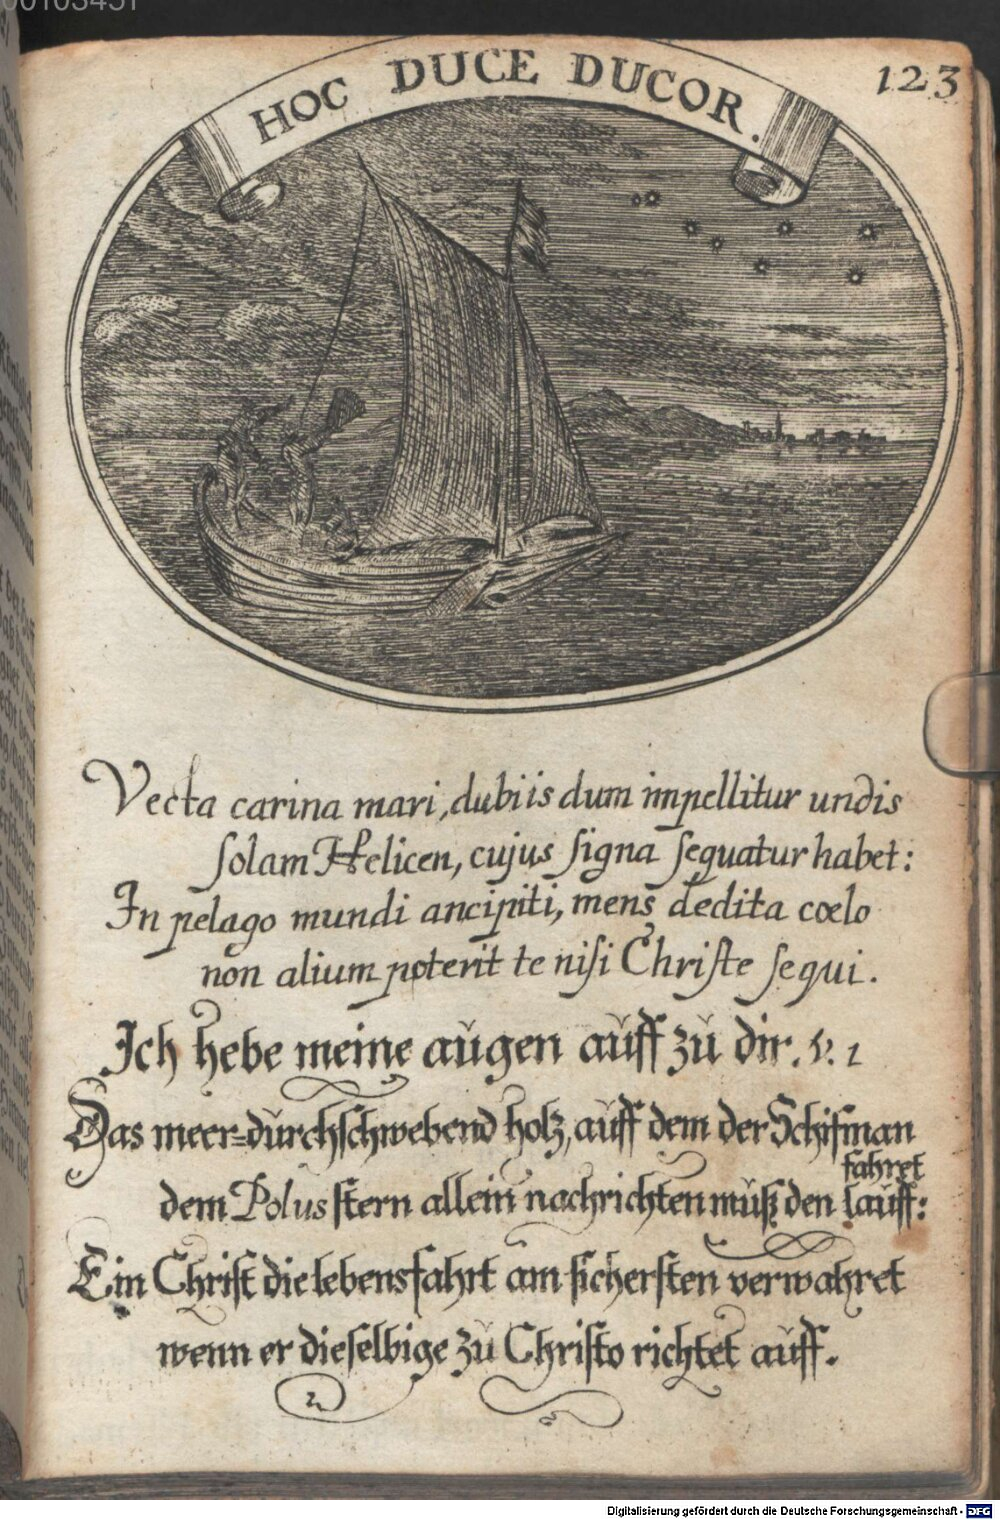 HOC DUCE DUCOR.
123
Vecta carina mari, dubiis dum impellitur undis
solam Helicen, cujus signa sequatur habet:
In pelago mundi ancipiti, mens dedita cœlo
non alium poterit te nisi Christe sequi.
Ich hebe meine augen auff zu dir. v. 1
Das meer-durchschwebend holz, auff dem der Schifman
fahret
dem Polus stern allein nachrichten muß den lauff:
Ein Christ die lebensfahrt am sichersten verwahret
wenn er dieselbige zu Christo richtet auff.
Digitalisierung gefördert durch die Deutsche Forschungsgemeinschaft - DFG